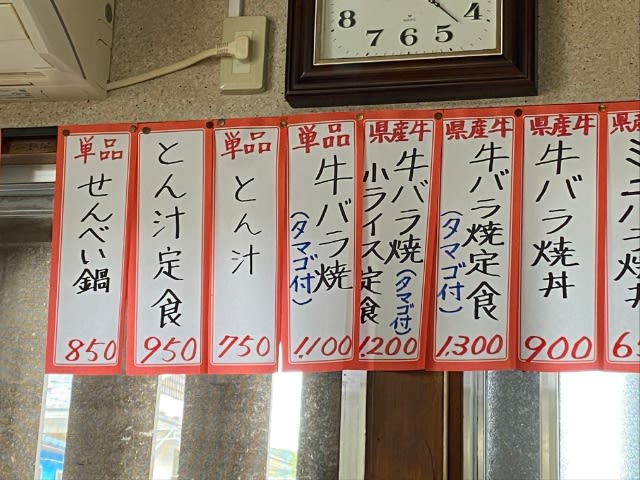 8
7
6
5
4
単品
せんべい鍋
850
とん汁定食
950
単品
とん汁
750
単品
牛バラ焼
(タマゴ付)
1,100
県産牛
牛バラ焼(タマゴ付)
小ライス定食
1,200
県産牛
牛バラ焼定食
(タマゴ付)
1,300
県産牛
牛バラ焼丼
900